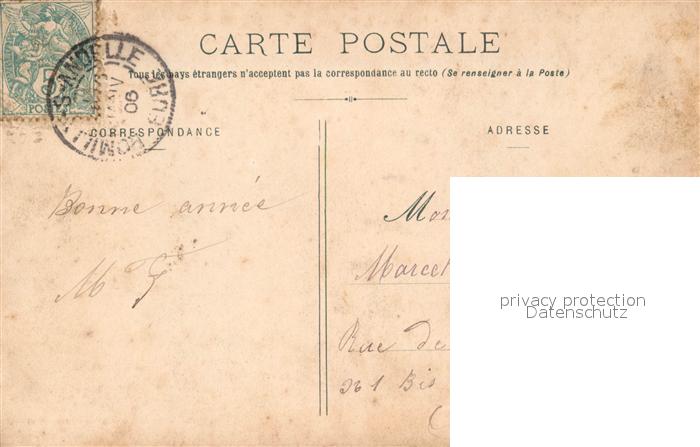 CARTE POSTALE
Tous les pays étrangers n'acceptent pas la correspondance au recto (Se renseigner à la Poste)
CORRESPONDANCE
ADRESSE
Bonne année
M
Marcel
Rue de
Bis
privacy protection
Datenschutz
ROMILLY-S-ANDELLE EURE
JANV
06
POSTES